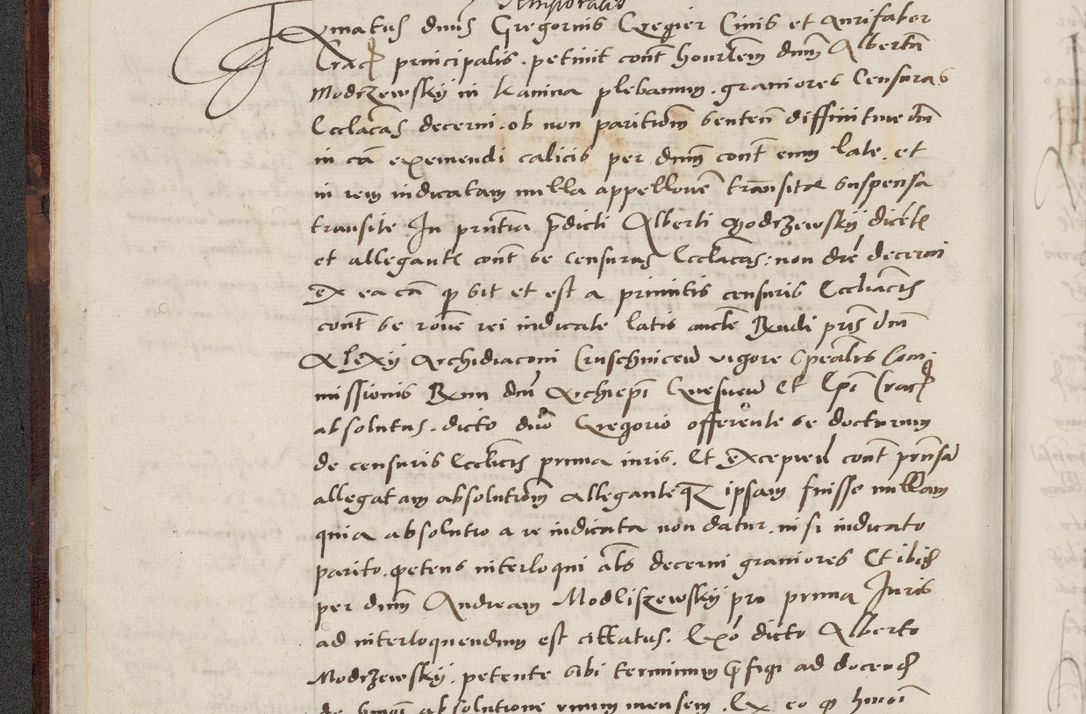 Temporalis
Famatus dnus Gregorius Cregier Civis et Aurifaber
Crac principalis. petivit cont honorlem dnm Alberta
Modrzewsky in Kanina plebanum. graviores Censuras
Ecclacas decerni. ob non paritiom senten diffinitive dm
in ca exemendi calicis per dnm cont eum late. et
in rem iudicatam nulla appellone transite suspensa
transite In pntia pdicti Alberti Modrzewsky dicete
et allegante cont se censuras Ecclacas: non dre decerni
Ex ea ca qp sit et est a primitis censuris Eccliacis
cont se roe rei iudicate latis aucte Rndi pris dni
Alexy Archidiaconi Cruschnicen vigore speals Com
missionis Rmi dni Archiepi Gnesnen Et Epi Crac
absolutus. dicto dno Gregorio offerente se docturum
de censuris Ecclicis prima iuris. Et excepien cont pnsa
allegatam absolutiom allegante q ipsam fuisse nullam
quia absolutio a re iudicata non datur. nisi iudicato
parito. petens interloqui als decerni graviores Et ibid
per dnm Andream Modliszewsky pro prima Iuris
ad interloquendum est cittatus. Exo dicto Alberto
Modrzewsky. petente sibi terminum pfigi ad docend
de absolutione unum mensem. Ex eo qp hmoi